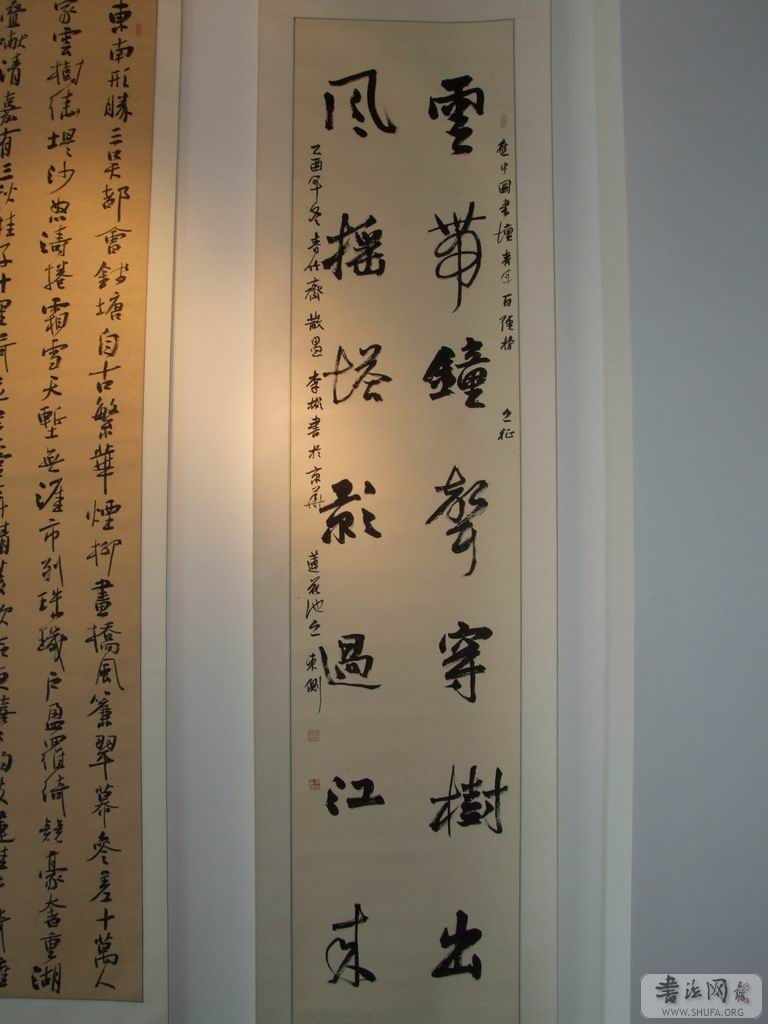 雲帶鐘聲穿樹出
風搖塔影過江來
應中國書壇青年百强榜之征
乙酉年冬青竹齋散愚李彬書於京華蓮花池之東側
東南形勝三吳都會錢塘自古繁華煙柳畫橋風簾翠幕參差十萬人
家雲樹繞堤沙怒濤捲霜雪天塹無涯市列珠璣戶盈羅綺競豪奢重湖
疊巘清嘉有三秋桂子十里荷花
書法网
WWW.SHUFA.ORG